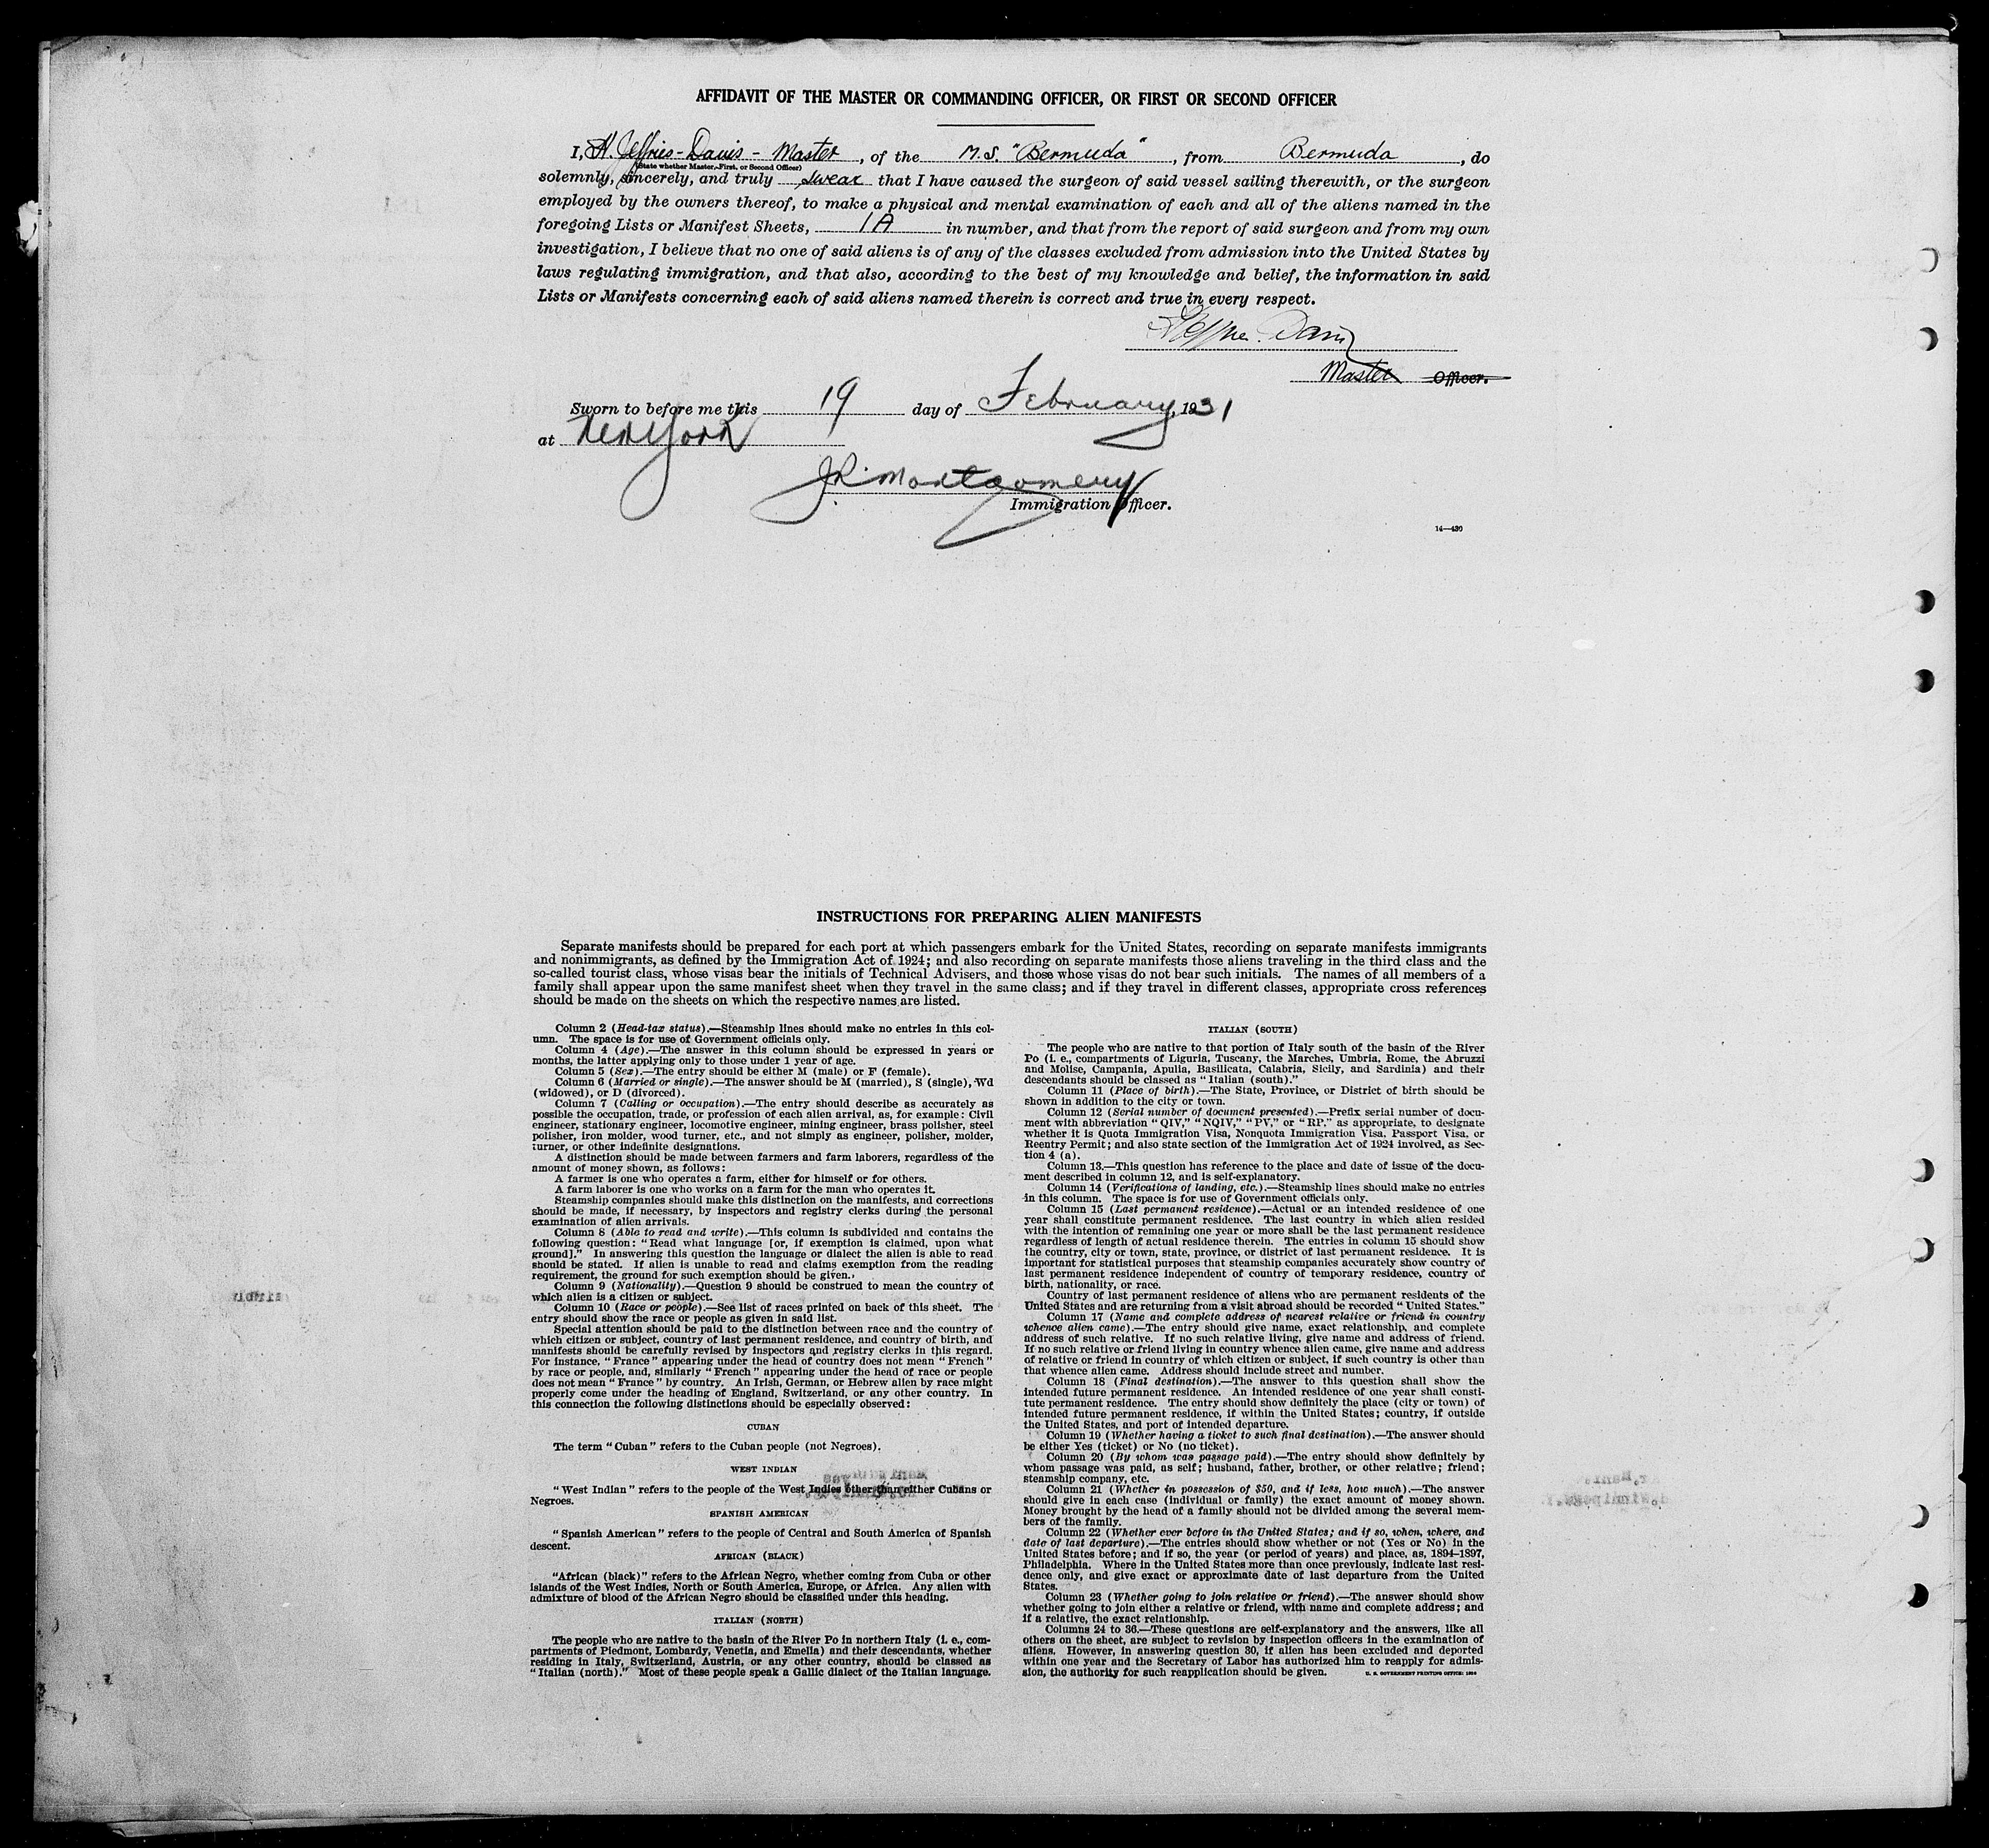 AFFIDAVIT OF THE MASTER OR COMMANDING OFFICER, OR FIRST OR SECOND OFFICER
I, H. Jeffries-Davis - Master, of the M.S. "Bermuda", from Bermuda, do
(State whether Master, First, or Second Officer)
solemnly, sincerely, and truly swear that I have caused the surgeon of said vessel sailing therewith, or the surgeon
employed by the owners thereof, to make a physical and mental examination of each and all of the aliens named in the
foregoing Lists or Manifest Sheets, 1A in number, and that from the report of said surgeon and from my own
investigation, I believe that no one of said aliens is of any of the classes excluded from admission into the United States by
laws regulating immigration, and that also, according to the best of my knowledge and belief, the information in said
Lists or Manifests concerning each of said aliens named therein is correct and true in every respect.
Master Officer.
Sworn to before me this 19 day of February, 1931
at New York
J.R. Montgomery
Immigration Officer.
14—430
INSTRUCTIONS FOR PREPARING ALIEN MANIFESTS
Separate manifests should be prepared for each port at which passengers embark for the United States, recording on separate manifests immigrants
and nonimmigrants, as defined by the Immigration Act of 1924; and also recording on separate manifests those aliens traveling in the third class and the
so-called tourist class, whose visas bear the initials of Technical Advisers, and those whose visas do not bear such initials. The names of all members of a
family shall appear upon the same manifest sheet when they travel in the same class; and if they travel in different classes, appropriate cross references
should be made on the sheets on which the respective names are listed.
Column 2 (Head-tax status).—Steamship lines should make no entries in this col-
umn. The space is for use of Government officials only.
Column 4 (Age).—The answer in this column should be expressed in years or
months, the latter applying only to those under 1 year of age.
Column 5 (Sex).—The entry should be either M (male) or F (female).
Column 6 (Married or single).—The answer should be M (married), S (single), Wd
(widowed), or D (divorced).
Column 7 (Calling or occupation).—The entry should describe as accurately as
possible the occupation, trade, or profession of each alien arrival, as, for example: Civil
engineer, stationary engineer, locomotive engineer, mining engineer, brass polisher, steel
polisher, iron molder, wood turner, etc., and not simply as engineer, polisher, molder,
turner, or other indefinite designations.
A distinction should be made between farmers and farm laborers, regardless of the
amount of money shown, as follows:
A farmer is one who operates a farm, either for himself or for others.
A farm laborer is one who works on a farm for the man who operates it.
Steamship companies should make this distinction on the manifests, and corrections
should be made, if necessary, by inspectors and registry clerks during the personal
examination of alien arrivals.
Column 8 (Able to read and write).—This column is subdivided and contains the
following question: "Read what language [or, if exemption is claimed, upon what
ground]." In answering this question the language or dialect the alien is able to read
should be stated. If alien is unable to read and claims exemption from the reading
requirement, the ground for such exemption should be given.
Column 9 (Nationality).—Question 9 should be construed to mean the country of
which alien is a citizen or subject.
Column 10 (Race or people).—See list of races printed on back of this sheet. The
entry should show the race or people as given in said list.
Special attention should be paid to the distinction between race and the country of
which citizen or subject, country of last permanent residence, and country of birth, and
manifests should be carefully revised by inspectors and registry clerks in this regard.
For instance, "France" appearing under the head of country does not mean "French"
by race or people, and, similarly "French" appearing under the head of race or people
does not mean "France" by country. An Irish, German, or Hebrew alien by race might
properly come under the heading of England, Switzerland, or any other country. In
this connection the following distinctions should be especially observed:
CUBAN
The term "Cuban" refers to the Cuban people (not Negroes).
WEST INDIAN
"West Indian" refers to the people of the West Indies other than either Cubans or
Negroes.
SPANISH AMERICAN
"Spanish American" refers to the people of Central and South America of Spanish
descent.
AFRICAN (BLACK)
"African (black)" refers to the African Negro, whether coming from Cuba or other
islands of the West Indies, North or South America, Europe, or Africa. Any alien with
admixture of blood of the African Negro should be classified under this heading.
ITALIAN (NORTH)
The people who are native to the basin of the River Po in northern Italy (i. e., com-
partments of Piedmont, Lombardy, Venetia, and Emelia) and their descendants, whether
residing in Italy, Switzerland, Austria, or any other country, should be classed as
"Italian (north)." Most of these people speak a Gallic dialect of the Italian language.
ITALIAN (SOUTH)
The people who are native to that portion of Italy south of the basin of the River
Po (i. e., compartments of Liguria, Tuscany, the Marches, Umbria, Rome, the Abruzzi
and Molise, Campania, Apulia, Basilicata, Calabria, Sicily, and Sardinia) and their
descendants should be classed as "Italian (south)."
Column 11 (Place of birth).—The State, Province, or District of birth should be
shown in addition to the city or town.
Column 12 (Serial number of document presented).—Prefix serial number of docu-
ment with abbreviation "QIV," "NQIV," "PV," or "RP," as appropriate, to designate
whether it is Quota Immigration Visa, Nonquota Immigration Visa, Passport Visa, or
Reentry Permit; and also state section of the Immigration Act of 1924 involved, as Sec-
tion 4 (a).
Column 13.—This question has reference to the place and date of issue of the docu-
ment described in column 12, and is self-explanatory.
Column 14 (Verifications of landing, etc.).—Steamship lines should make no entries
in this column. The space is for use of Government officials only.
Column 15 (Last permanent residence).—Actual or an intended residence of one
year shall constitute permanent residence. The last country in which alien resided
with the intention of remaining one year or more shall be the last permanent residence
regardless of length of actual residence therein. The entries in column 15 should show
the country, city or town, state, province, or district of last permanent residence. It is
important for statistical purposes that steamship companies accurately show country of
last permanent residence independent of country of temporary residence, country of
birth, nationality, or race.
Country of last permanent residence of aliens who are permanent residents of the
United States and are returning from a visit abroad should be recorded "United States."
Column 17 (Name and complete address of nearest relative or friend in country
whence alien came).—The entry should give name, exact relationship, and complete
address of such relative. If no such relative living, give name and address of friend.
If no such relative or friend living in country whence alien came, give name and address
of relative or friend in country of which citizen or subject, if such country is other than
that whence alien came. Address should include street and number.
Column 18 (Final destination).—The answer to this question shall show the
intended future permanent residence. An intended residence of one year shall consti-
tute permanent residence. The entry should show definitely the place (city or town) of
intended future permanent residence, if within the United States; country, if outside
the United States, and port of intended departure.
Column 19 (Whether having a ticket to such final destination).—The answer should
be either Yes (ticket) or No (no ticket).
Column 20 (By whom was passage paid).—The entry should show definitely by
whom passage was paid, as self; husband, father, brother, or other relative; friend;
steamship company, etc.
Column 21 (Whether in possession of $50, and if less, how much).—The answer
should give in each case (individual or family) the exact amount of money shown.
Money brought by the head of a family should not be divided among the several mem-
bers of the family.
Column 22 (Whether ever before in the United States; and if so, when, where, and
date of last departure).—The entries should show whether or not (Yes or No) in the
United States before; and if so, the year (or period of years) and place, as, 1894–1897,
Philadelphia. Where in the United States more than once previously, indicate last resi-
dence only, and give exact or approximate date of last departure from the United
States.
Column 23 (Whether going to join relative or friend).—The answer should show
whether going to join either a relative or friend, with name and complete address; and
if a relative, the exact relationship.
Columns 24 to 36.—These questions are self-explanatory and the answers, like all
others on the sheet, are subject to revision by inspection officers in the examination of
aliens. However, in answering question 30, if alien has been excluded and deported
within one year and the Secretary of Labor has authorized him to reapply for admis-
sion, the authority for such reapplication should be given.
U. S. GOVERNMENT PRINTING OFFICE: